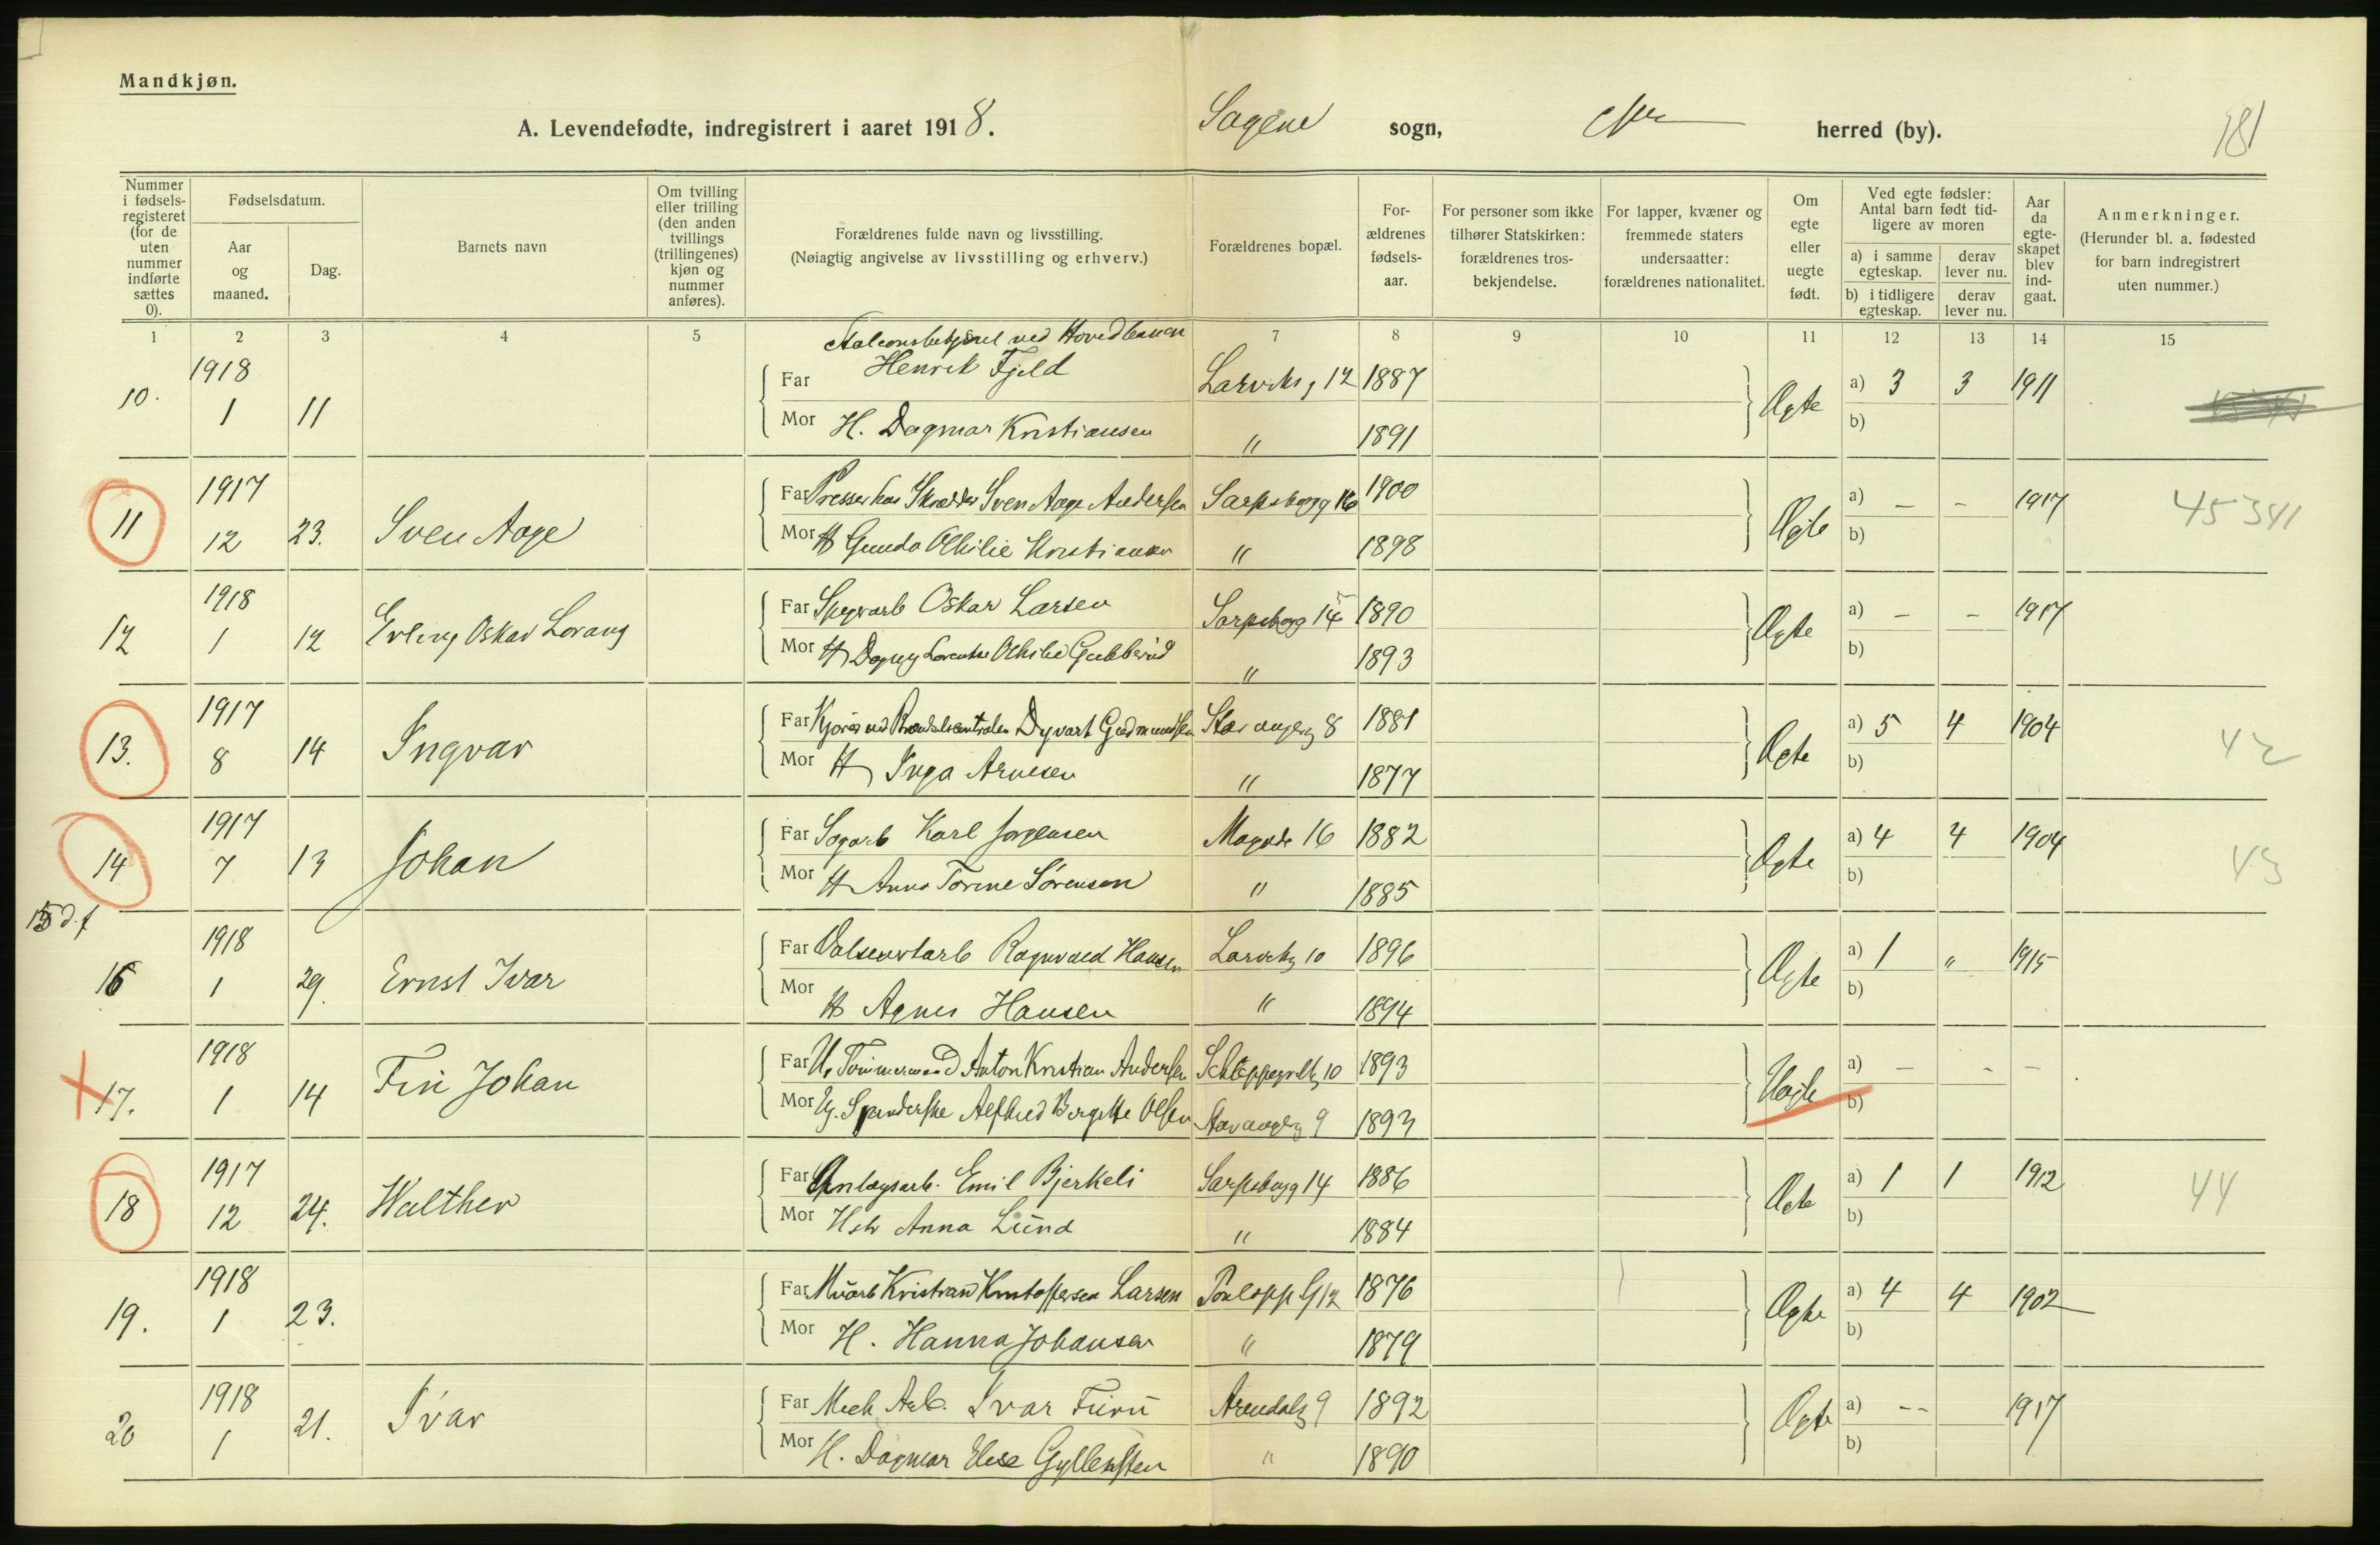 Mandkjøn.
A. Levendefødte, indregistrert i aaret 1918. Sagene sogn, herred (by). 181
Nummer i fødsels-registeret (for de uten nummer indførte sættes 0).
Fødselsdatum.
Aar og maaned.
Dag.
Barnets navn
Om tvilling eller trilling (den anden tvillings (trillingenes) kjøn og nummer anføres).
Forældrenes fulde navn og livsstilling.
(Nøiagtig angivelse av livsstilling og erhverv.)
Forældrenes bopæl.
For-ældrenes fødsels-aar.
For personer som ikke tilhører Statskirken: forældrenes tros-bekjendelse.
For lapper, kvæner og fremmede staters undersaatter: forældrenes nationalitet.
Om egte eller uegte født.
Ved egte fødsler: Antal barn født tid-ligere av moren
a) i samme egteskap. derav lever nu.
b) i tidligere egteskap. derav lever nu.
Aar da egte-skapet blev ind-gaat.
Anmerkninger.
(Herunder bl. a. fødested for barn indregistrert uten nummer.)
1 2 3 4 5 7 8 9 10 11 12 13 14 15
ved Hovedbanen
10. 1918 Far Henrik Fjeld Larviksg 12 1887 Ægte a) 3 3 1911
1 11 Mor H. Dagmar Kristiansen " 1891 b)
11 1917 Far Presser hos Skrædder Sven Aage Andersen Sarpsborgg 16 1900 Ægte a) – – 1917 45341
12 23. Sven Aage Mor H Gunda Othilie Kristiansen " 1898 b)
12 1918 Far Oskar Larsen Sarpsborg 1890 Ægte a) – – 1917
1 12 Erling Oskar Lorang Mor H Dagny Othilie " 1893 b)
13. 1917 Far Dyvart Gudmundsen Stavangerg 8 1881 Ægte a) 5 4 1904 42
8 14 Ingvar Mor H Inga Arnesen " 1877 b)
14 1917 Far Karl Jørgensen 16 1882 Ægte a) 4 4 1904 43
7 13 Johan Mor H Anna Torine Sørensen " 1885 b)
15 d.f
16 1918 Far Ragnvald Hansen Larvikg 10 1896 Ægte a) 1 " 1915
1 29. Ernst Ivar Mor H Agnes Hansen " 1894 b)
17. 1918 Far U. Tømmermand Anton Kristian Andersen Schleppegrellsg 10 1893 Uægte a) – – –
1 14 Fin Johan Mor Ug. Spinderske Alfhild Bergitte Olsen Stavangerg 9 1893 b)
18 1917 Far Anlægsarb. Emil Bjerkeli Sarpsborgg 14 1886 Ægte a) 1 1 1912 44
12 24. Walther Mor Hstr Anna Lund " 1884 b)
19. 1918 Far Murarb Kristian Kristoffersen Larsen 12 1876 Ægte a) 4 4 1902
1 23. Mor H. Hanna Johansen " 1879 b)
20 1918 Far Mek Arb. Ivar Furu Arendalsg 9 1892 Ægte a) – – 1917
1 21. Ivar Mor H. Dagmar Elise Gyllensten " 1890 b)